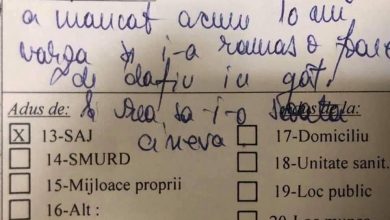 a mancat acum 10 min
varza și i-a ramas o foaie
de dafin in gât.
Și vrea sa i-o scoata
cineva.
Adus de: Adus de la:
X 13-SAJ 17-Domiciliu
14-SMURD 18-Unitate sanit.
15-Mijloace proprii 19-Loc public
16-Alt :